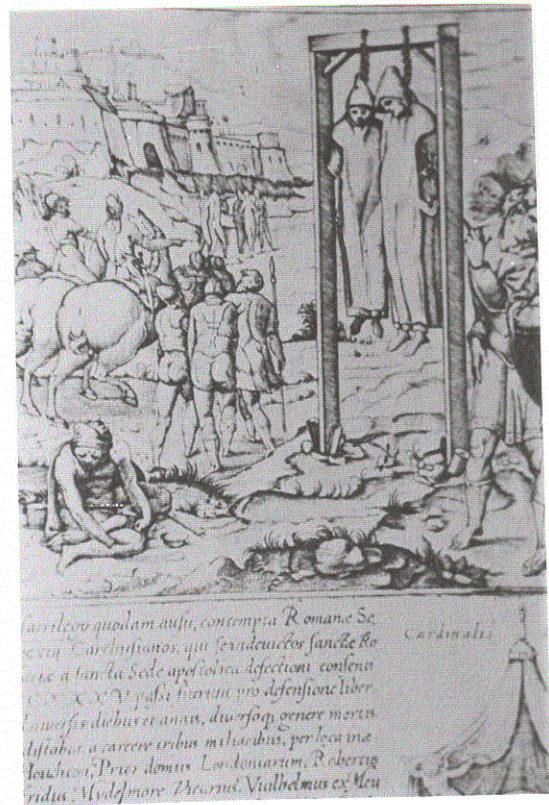 sacrilego quodam ausu, contempta Romanæ Se
Carthusianos, qui
a sancta Sede apostolica defectioni consenti
C X X X V passi fuerunt pro defensione liber
diversis diebus et annis, diversoq; genere mortis
distabat a carcere tribus miliaribus, per loca
Houchton, Prior domus Londoniarum, Robertus
fridus, Mydelmore Vicarius, Vuilhelmus ex Meu
Cardinalis